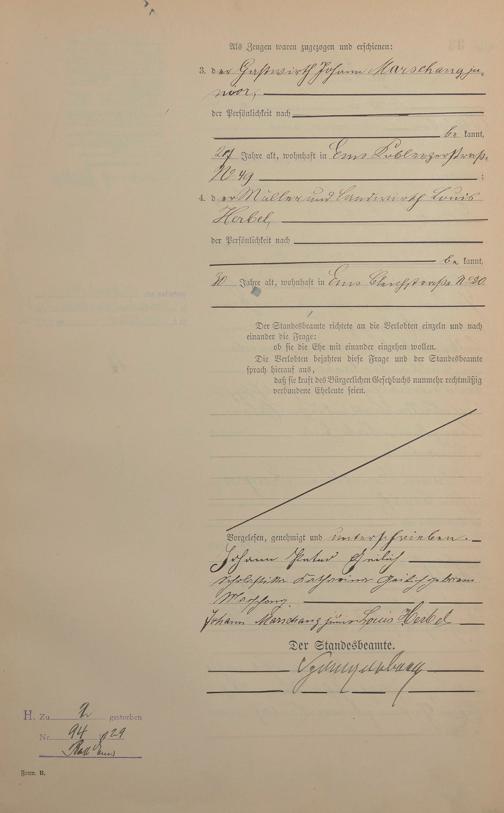 Als Zeugen waren zugezogen und erschienen:
3. der Gastwirth Johann Marschang ju-
nior,
der Persönlichkeit nach
be kannt,
Jahre alt, wohnhaft in Ems Koblenzerstraße
No 49 ;
4. der Müller und Landwirth Louis
Herbel,
der Persönlichkeit nach
be kannt,
30 Jahre alt, wohnhaft in Ems Bleichstraße No 20.
Der Standesbeamte richtete an die Verlobten einzeln und nach
einander die Frage:
ob sie die Ehe mit einander eingehen wollen.
Die Verlobten bejahten diese Frage und der Standesbeamte
sprach hierauf aus,
daß sie kraft des Bürgerlichen Gesetzbuchs nunmehr rechtmäßig
verbundene Eheleute seien.
Vorgelesen, genehmigt und unterschrieben.
Johann Peter
Katharina geborene
Marschang
Johann Marschang junior Louis Herbel
Der Standesbeamte.
H. Zu gestorben
Nr. 94 29
Bad Ems
Form. B.